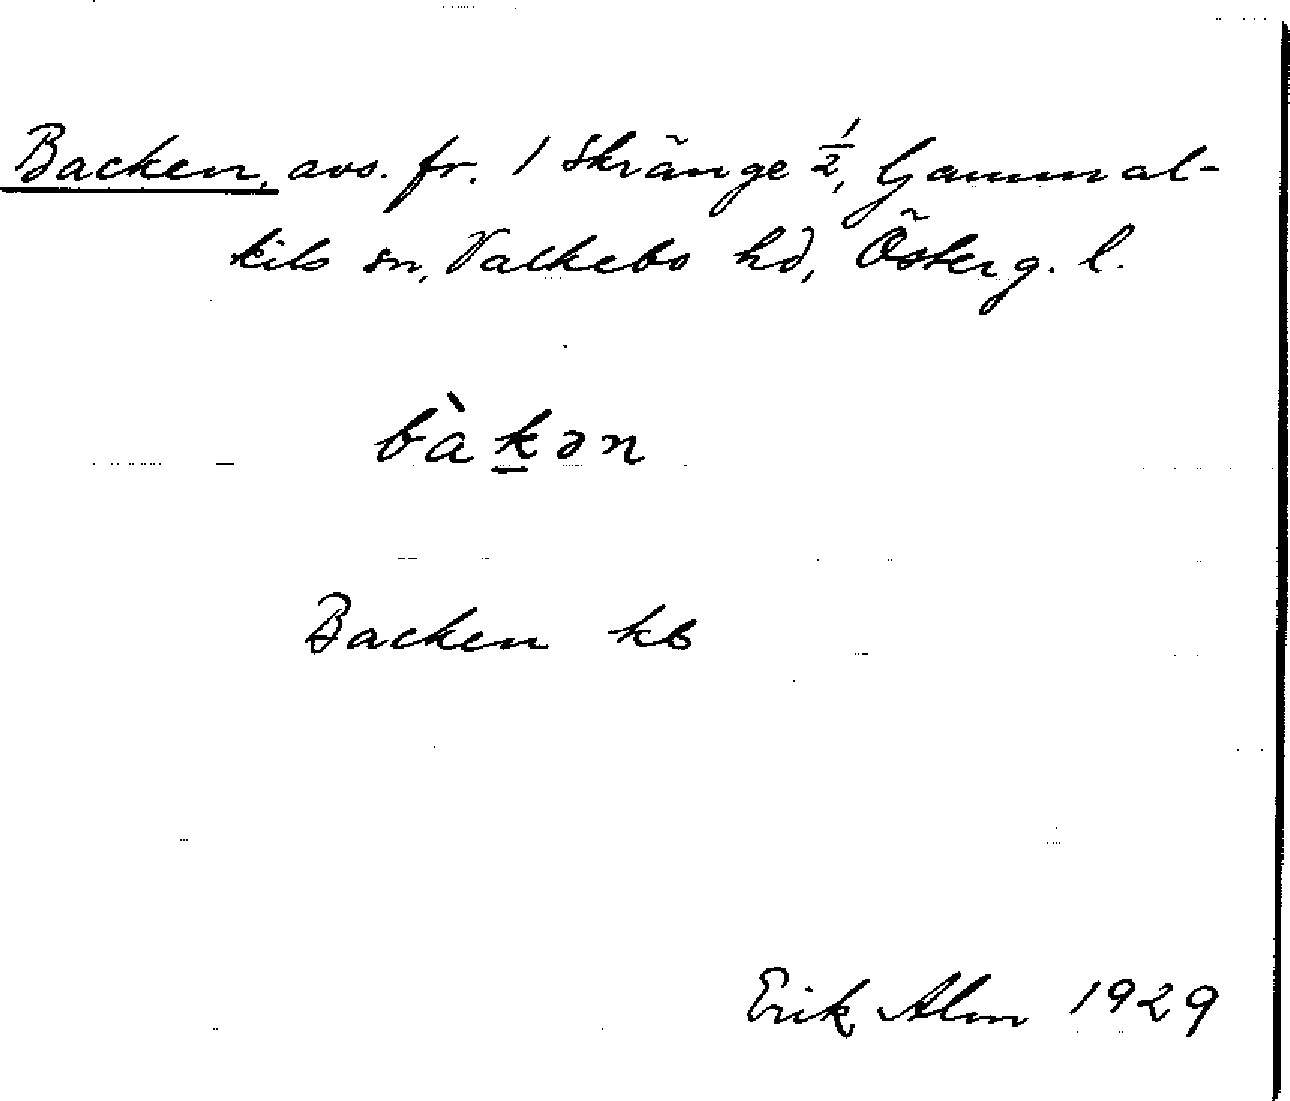 Backen, avs. fr. 1 Skränge ½, Gammal-
kils sn, Valkebo hd, Österg. l.
bàk̲ən
Backen kb
Erik Alm 1929